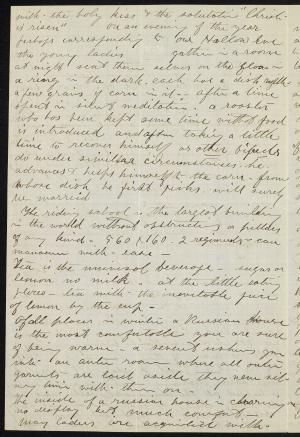 with the holy kiss & the salutation "Christ
is risen" On an evening of the year
perhaps corresponding to our Hallow Eve
the young ladies gather in a room
at night seat them selves on the floor in
a ring in the dark. each has a dish with
a few grains of corn in it - after a time
spent in silent meditation. a rooster
who has been kept some time without food
is introduced and after taking a little
time to recover himself as other bipeds
do under similar circumstances. he
advances & helps himself to the corn - from
whose dish he first picks. will surely
be married
The riding school is the largest building
in the world without obstructions or pillars
of any kind. 560 x 160. 2 regiments can
manouver with ease -
Tea is the universal beverage - sugar or
lemon no milk. at the little eating
places - tea with the inevitable piece
of lemon by the cup -
Of all places in winter a Russian house
is the most comfortable you are sure
of being warm - a servant ushers you
into an ante room - where all outer
garments are laid aside they never sit
any time with them on.
The inside of a russian house is charming
no display but much comfort -
many ladies are acquainted with